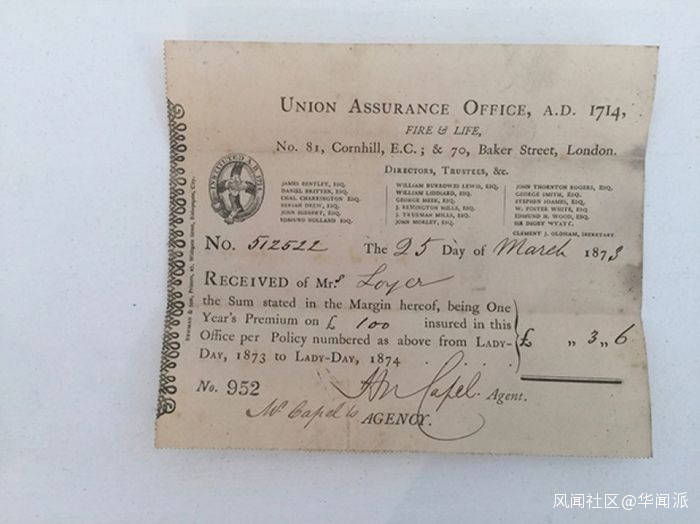 UNION ASSURANCE OFFICE, A.D. 1714,
FIRE & LIFE,
No. 81, Cornhill, E.C.; & 70, Baker Street, London.
DIRECTORS, TRUSTEES, &c.
INSTITUTED A.D. 1714
JAMES BENTLEY, ESQ.
DANIEL BRITTEN, ESQ.
CHAS. CHARRINGTON ESQ.
BERIAH DREW, ESQ.
JOHN HIBBERT, ESQ.
EDMUND HOLLAND ESQ.
WILLIAM BURROWES LEWIS, ESQ.
WILLIAM LIDDIARD, ESQ.
GEORGE MEEK, ESQ.
J. REMINGTON MILLS, ESQ.
J. TRUEMAN MILLS, ESQ.
JOHN MORLEY, ESQ.
JOHN THORNTON ROGERS, ESQ.
GEORGE SMITH, ESQ.
STEPHEN SOAMES, ESQ.
W. FOSTER WHITE, ESQ.
EDMUND H. WOOD, ESQ.
SIR DIGBY WYATT.
CLEMENT J. OLDHAM, SECRETARY.
No. 512522 The 25 Day of March 1873
RECEIVED of Mrs Loyer
the Sum stated in the Margin hereof, being One
Year's Premium on £ 100 insured in this
Office per Policy numbered as above from LADY-
DAY, 1873 to LADY-DAY, 1874
£ „ 3 „ 6
No. 952 Capel Agent.
Mr Capel's AGENCY.
NEWMAN & SON, Printers, Bishopsgate, City.
风闻社区@华闻派